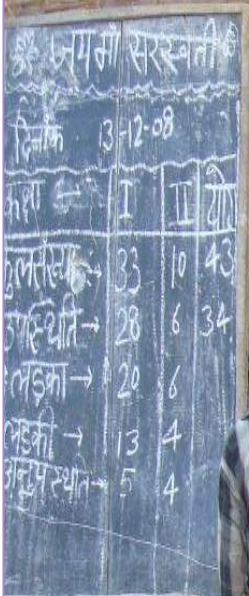 जय माँ सरस्वती
दिनाँक 13-12-08
कक्षा → I II योग
कुलसंख्या → 33 10 43
उपस्थिति → 28 6 34
लड़का → 20 6
लड़की → 13 4
अनुपस्थति → 5 4